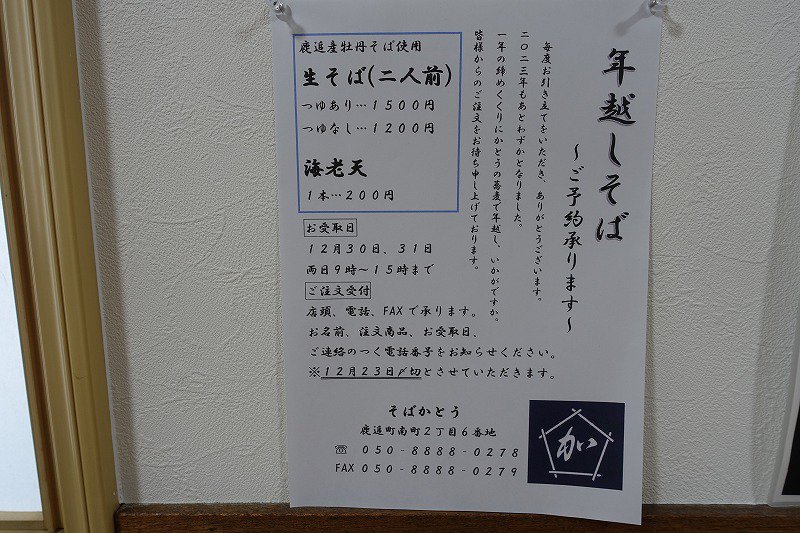 年越しそば
～ご予約承ります～
毎度お引き立てをいただき、ありがとうございます。
二〇二三年もあとわずかとなりました。
一年の締めくくりにかとうの蕎麦で年越し、いかがですか。
皆様からのご注文をお待ち申し上げております。
鹿追産牡丹そば使用
生そば(二人前)
つゆあり…1500円
つゆなし…1200円
海老天
1本…200円
お受取日
12月30日、31日
両日9時～15時まで
ご注文受付
店頭、電話、FAXで承ります。
お名前、注文商品、お受取日、
ご連絡のつく電話番号をお知らせください。
※12月23日〆切とさせていただきます。
そばかとう
鹿追町南町2丁目6番地
☏ 050-8888-0278
FAX 050-8888-0279
か